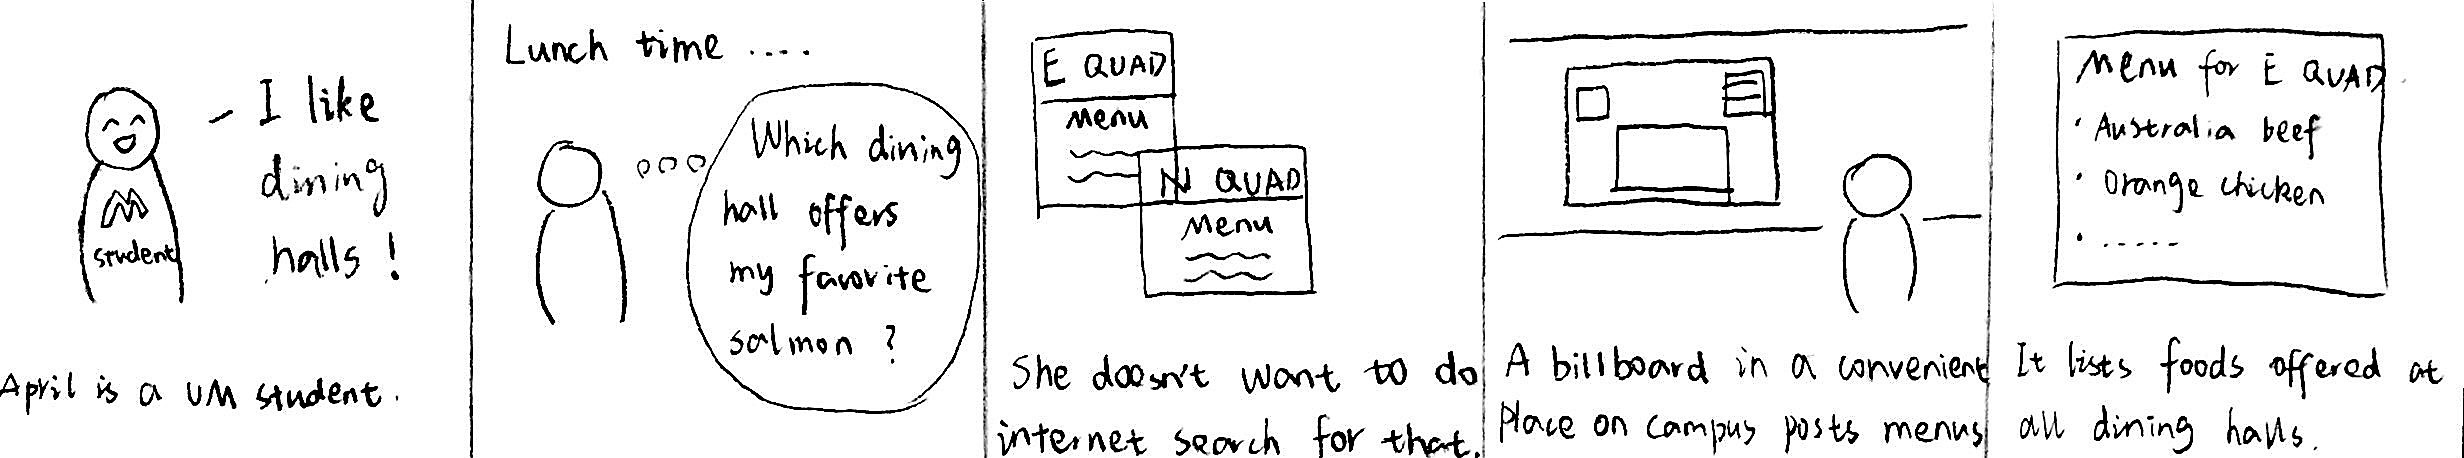 I like
dining
halls !
M
student
April is a UM student.
Lunch time ....
Which dining
hall offers
my favorite
salmon ?
E QUAD
Menu
N QUAD
Menu
She doesn't want to do
internet search for that.
A billboard in a convenient
Place on campus posts menus
Menu for E QUAD
· Australia beef
· Orange chicken
· .....
It lists foods offered at
all dining halls.